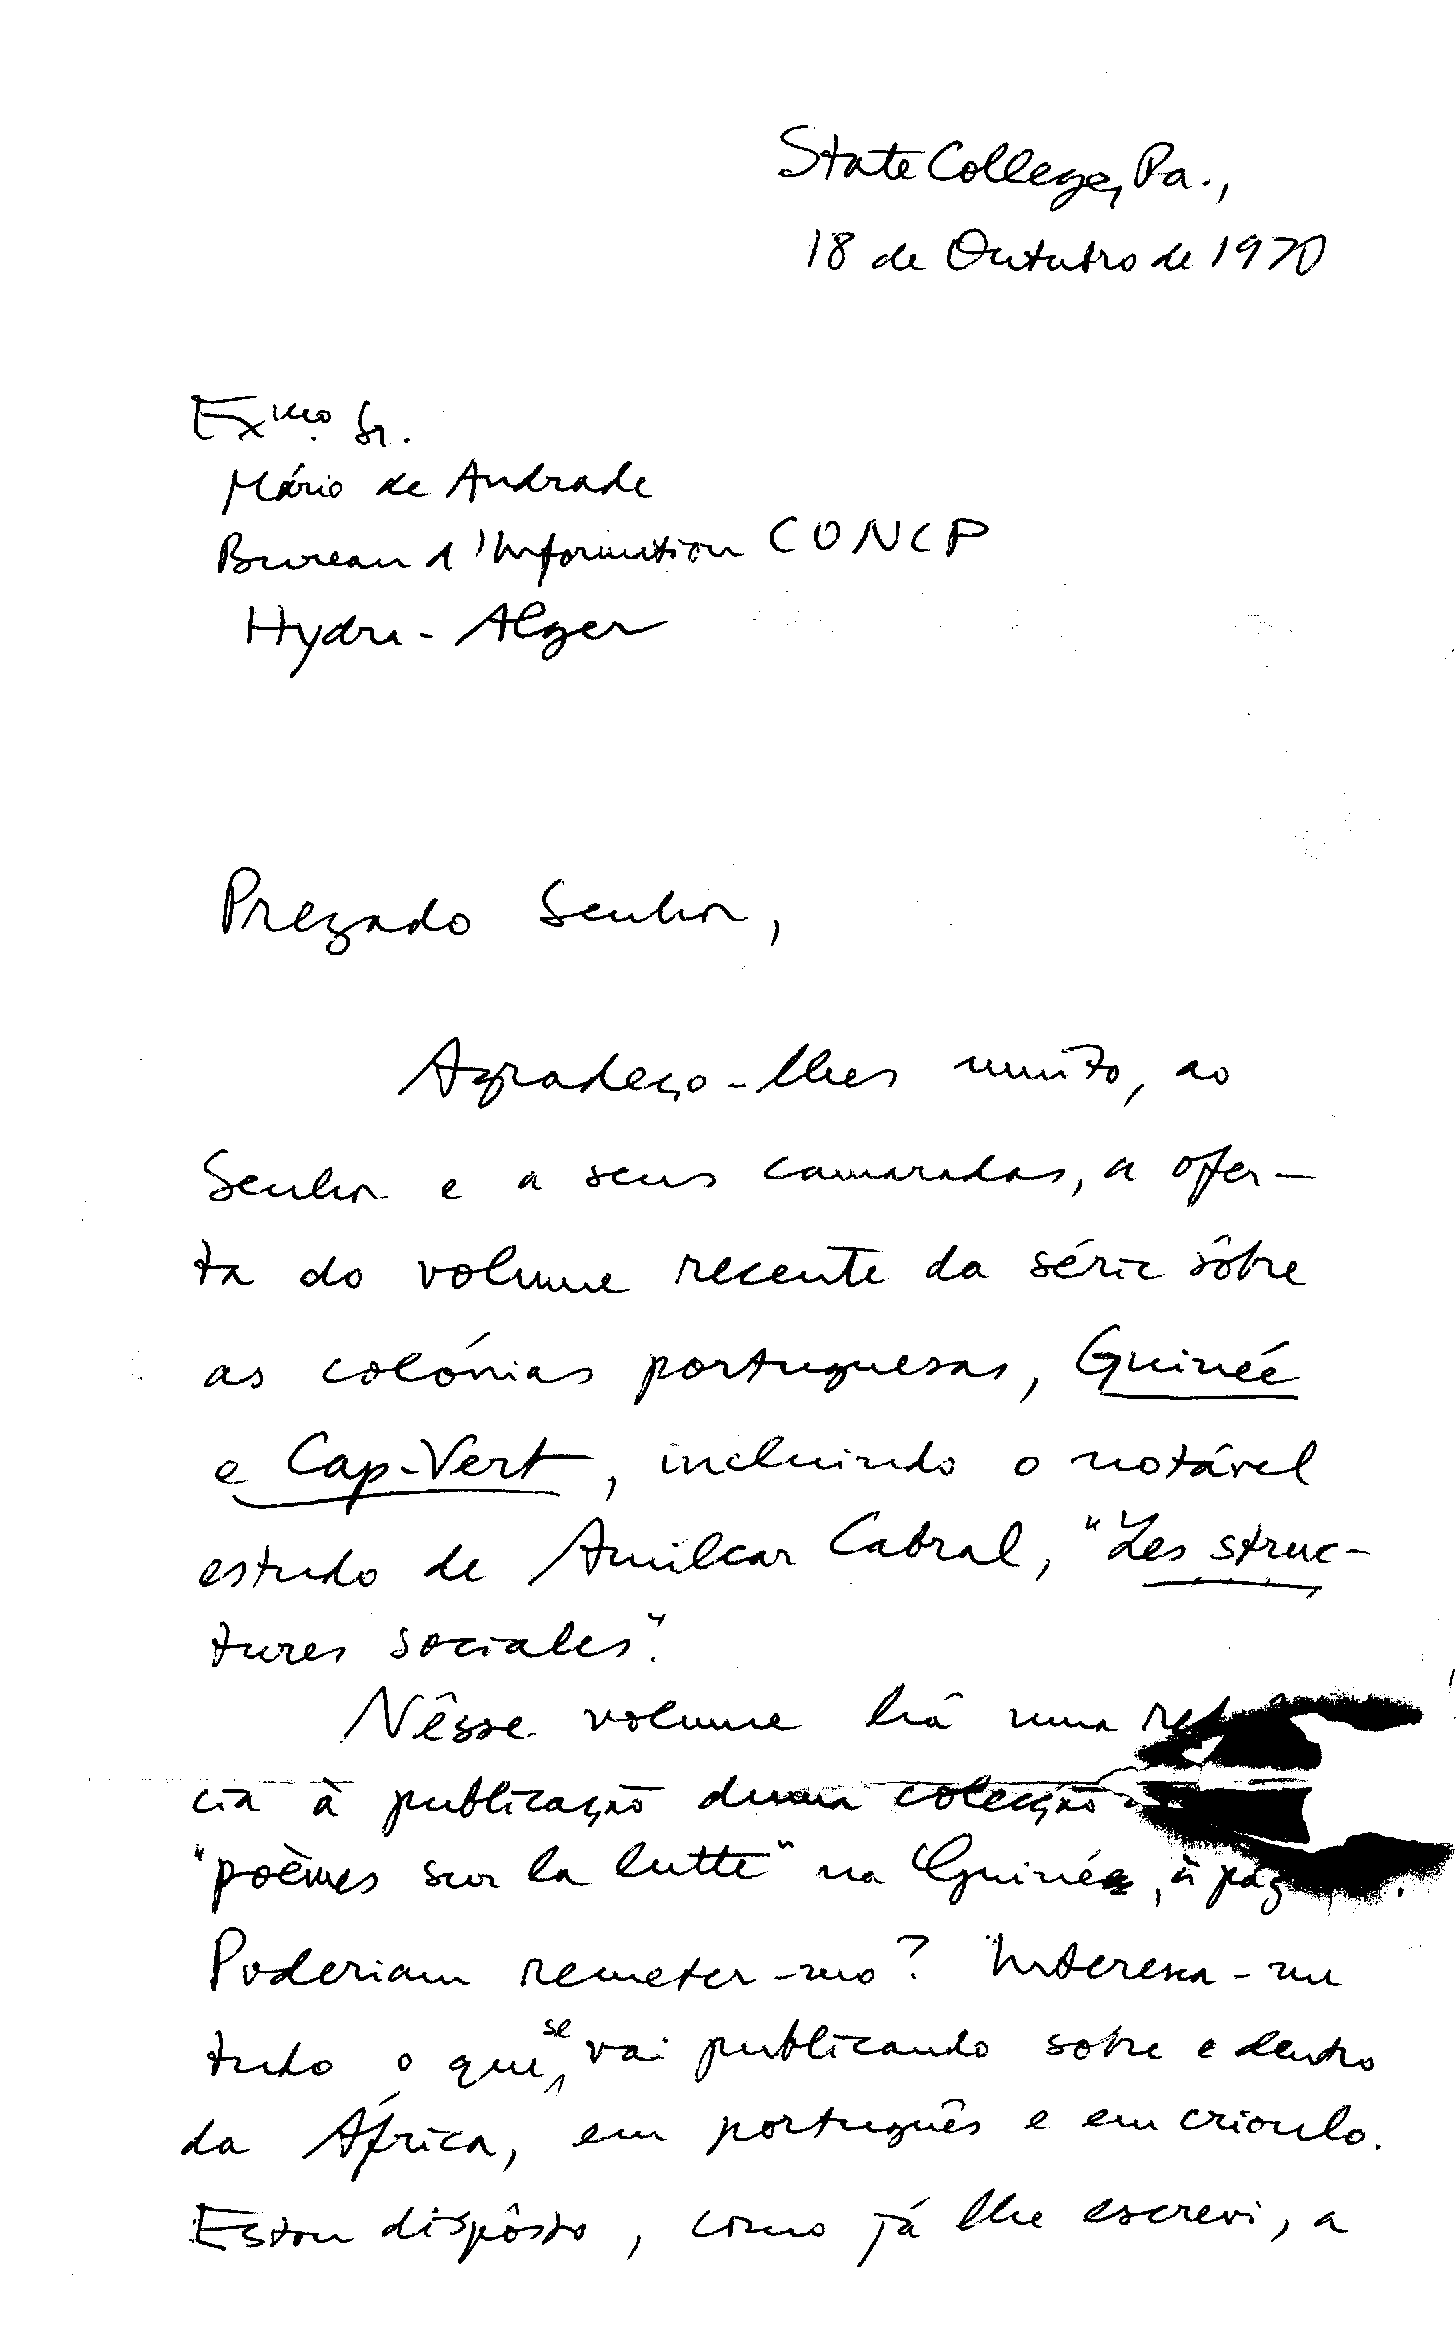 State College, Pa.,
18 de Outubro de 1970
Exmo. Sr.
Mário de Andrade
Bureau d'Information CONCP
Hydra - Alger
Prezado Senhor,
Agradeço-lhes muito, ao
Senhor e a seus camaradas, a ofer-
ta do volume recente da série sôbre
as colónias portuguesas, Guinée
e Cap-Vert, incluindo o notável
estudo de Amilcar Cabral, "Les struc-
tures sociales".
Nêsse volume há uma
cia à publicação duma colecção
"poèmes sur la lutte" na Guiné, à pág
Poderiam remeter-mo? Interessa-me
tudo o que se vai publicando sobre e dentro
da África, em português e em crioulo.
Estou dispôsto, como já lhe escrevi, a